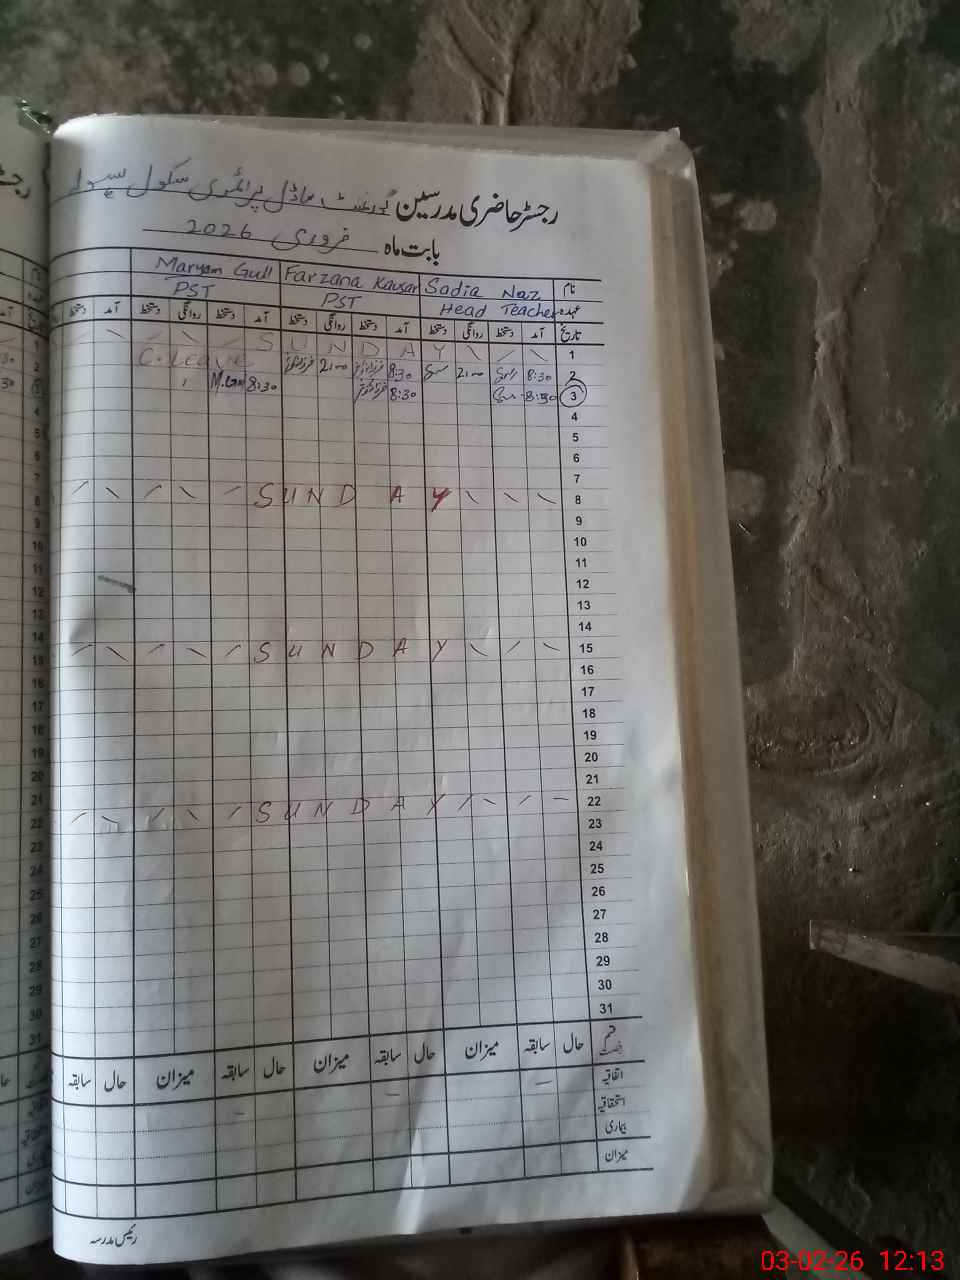 رجسٹر حاضری مدرسین گورنمنٹ ماڈل پرائمری سکول
بابت ماہ فروری 2026
نام Sadia Naz Farzana Kausar Maryam Gull
عہدہ Head Teacher PST PST
تاریخ آمد دستخط روانگی دستخط آمد دستخط روانگی دستخط آمد دستخط روانگی دستخط آمد دستخط
1 SUNDAY
2 8:30 2:00 8:30 2:00 C. Leave
3 8:30 8:30 8:30
4
5
6
7
8 SUNDAY
9
10
11
12
13
14
15 SUNDAY
16
17
18
19
20
21
22 SUNDAY
23
24
25
26
27
28
29
30
31
قسم رخصت حال سابقہ میزان حال سابقہ میزان حال سابقہ میزان حال سابقہ
اتفاقیہ
استحقاقیہ
بیماری
میزان
رئیس مدرسہ
03-02-26 12:13